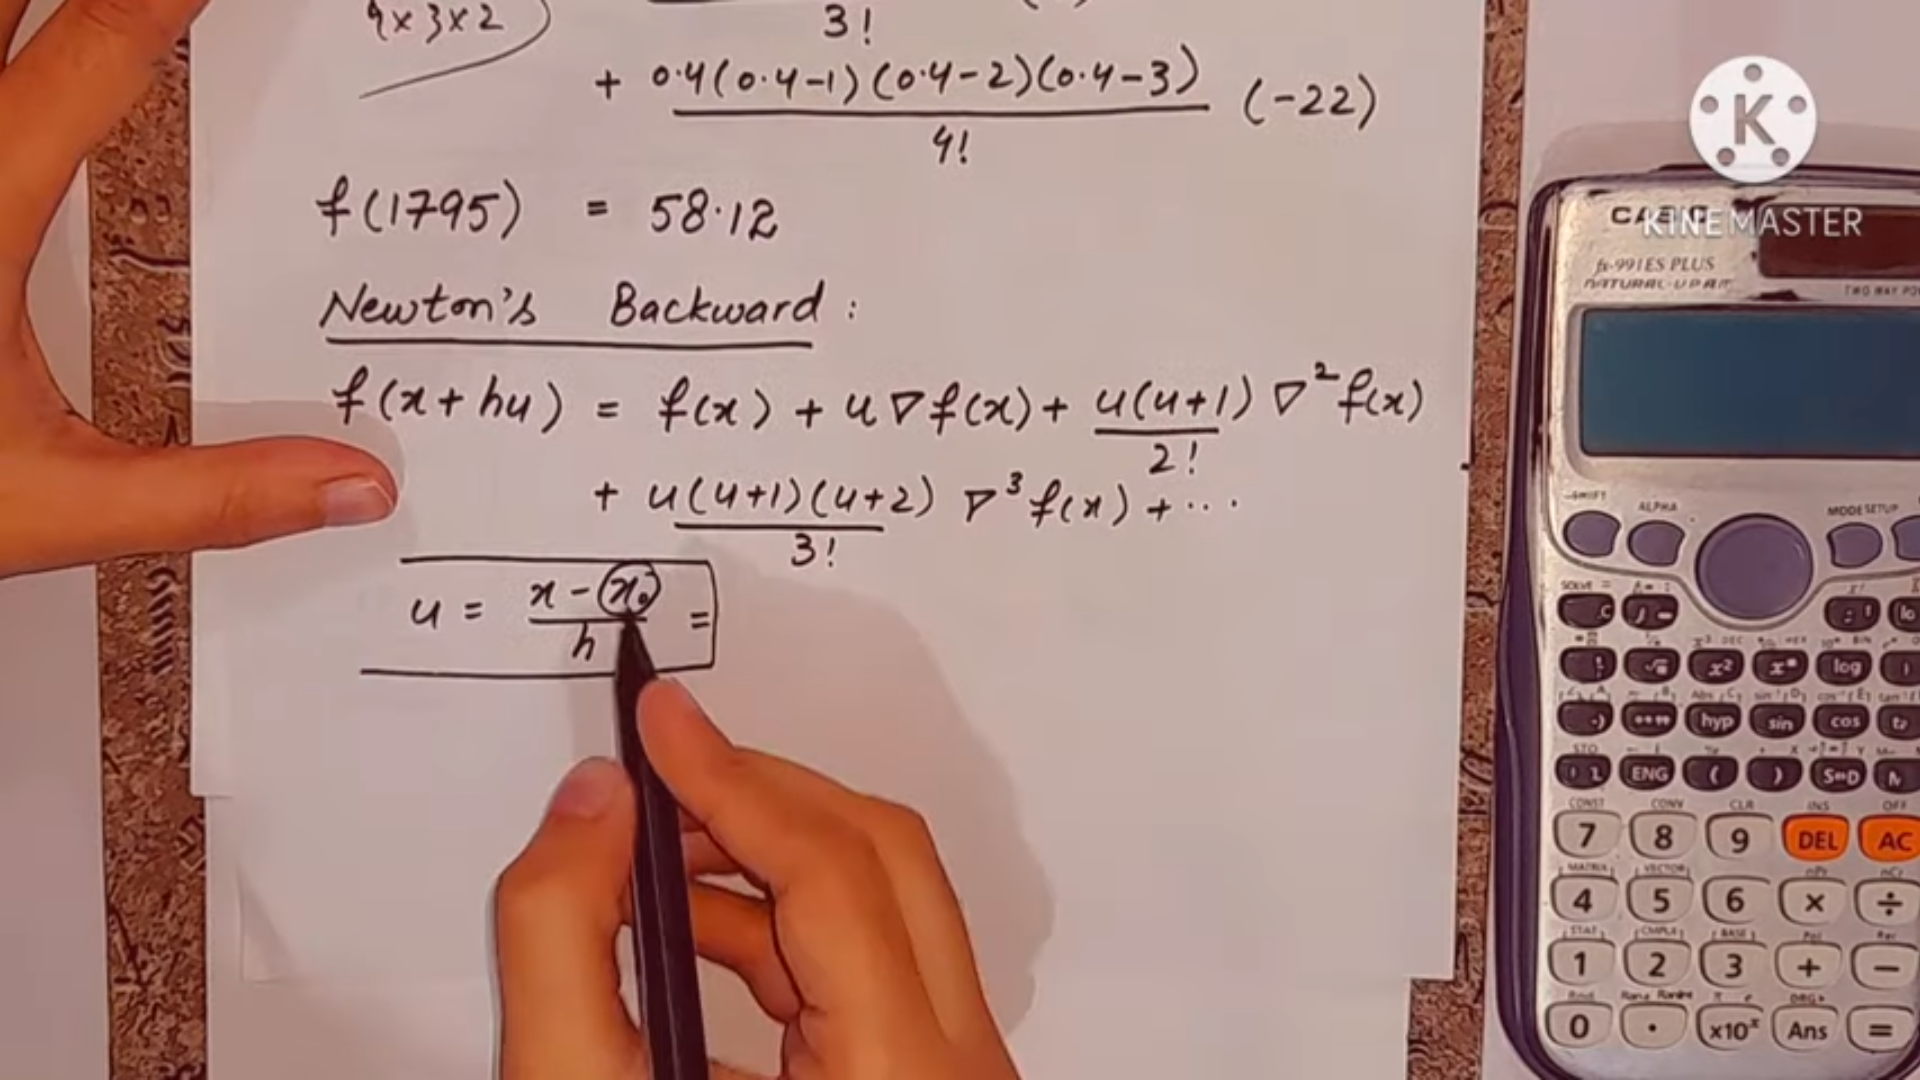 4x3x2
3!
+ 0.4(0.4-1)(0.4-2)(0.4-3) (-22)
4!
f(1795) = 58.12
Newton's Backward :
f(x+hu) = f(x) + u∇f(x) + u(u+1) ∇²f(x)
2!
+ u(u+1)(u+2) ∇³f(x) + ...
3!
u = x - x₀ =
h
K
KINEMASTER
CASIO
fx-991ES PLUS
NATURAL-V.P.A.M.
TWO WAY PO
SHIFT
ALPHA
MODE SETUP
SOLVE =
log
x²
hyp sin cos
STO
ENG ( ) S⇔D M
CONST CONV CLR INS OFF
7 8 9 DEL AC
MATRIX VECTOR nPr nCr
4 5 6 × ÷
STAT CMPLX BASE Pol Rec
1 2 3 + −
Rnd Ran# RanInt π e DRG▸
0 . ×10ˣ Ans =